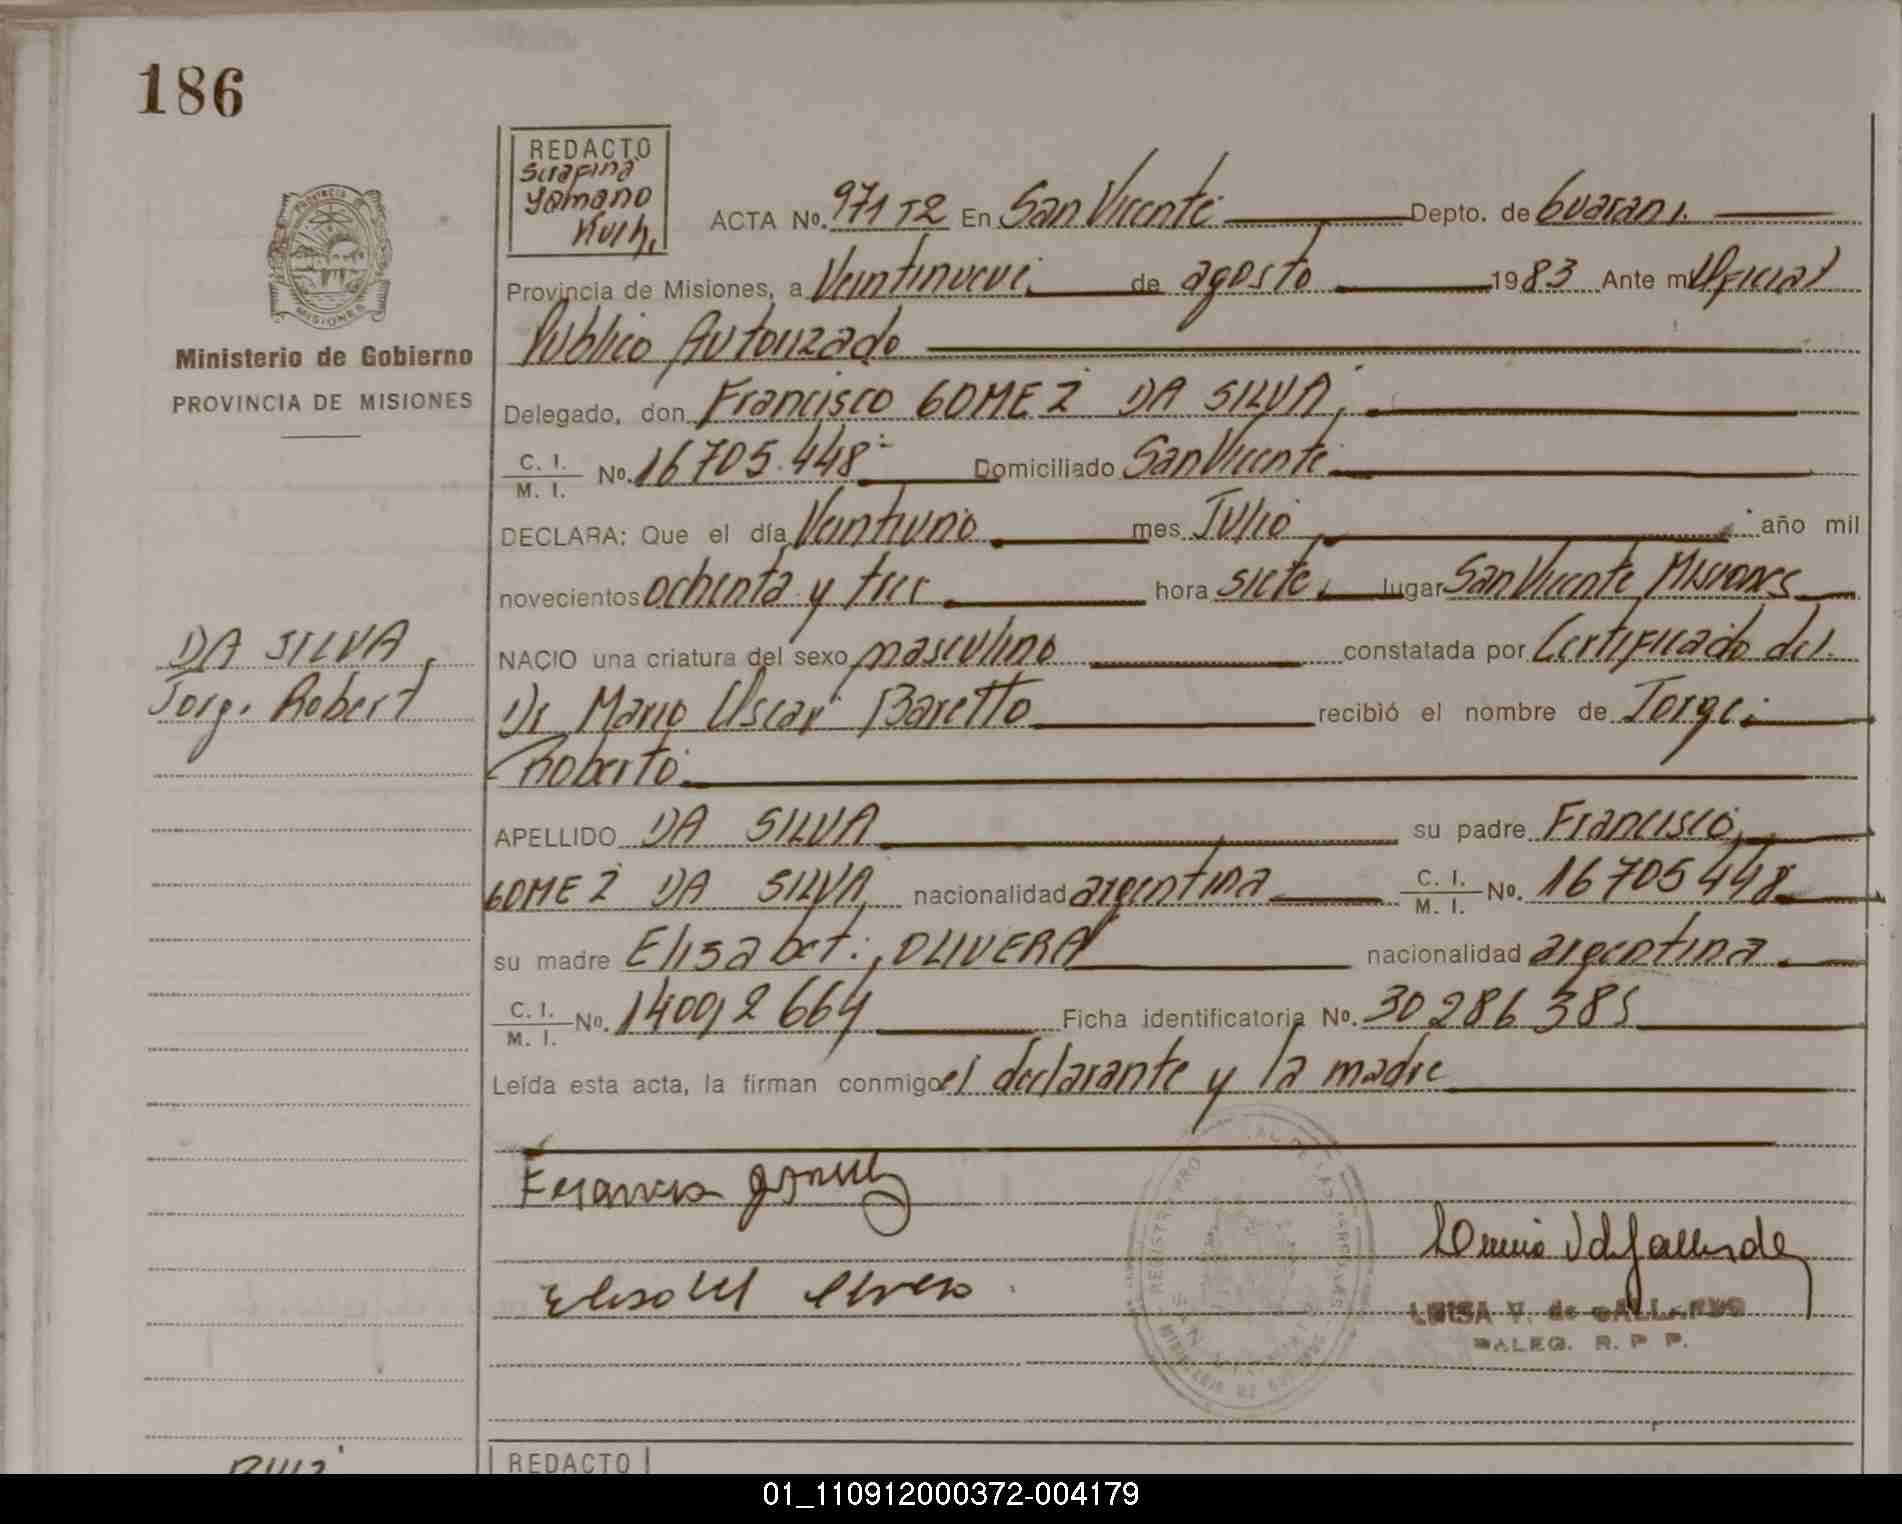 186
REDACTO
Serafina
Yamano
Kuch,
ACTA No. 971 T2 En San Vicente Depto. de Guarani.
Provincia de Misiones, a Veintinueve, de agosto 1983 Ante mi Oficial
Publico Autorizado
Ministerio de Gobierno
PROVINCIA DE MISIONES
Delegado, don Francisco GOMEZ DA SILVA,
C. I.
M. I. No. 16705.448 Domiciliado San Vicente
DECLARA: Que el día Veintiuno mes Julio, año mil
novecientos ochenta y tres hora siete, lugar San Vicente Misiones
DA SILVA,
NACIO una criatura del sexo masculino constatada por Certificado del
Jorge Robert
Dr Mario Oscar Baretto recibió el nombre de Jorge
Roberto
APELLIDO DA SILVA su padre Francisco,
GOMEZ DA SILVA, nacionalidad argentina C. I.
M. I. No. 16705448
su madre Elisabet OLIVERA nacionalidad argentina
C. I.
M. I. No. 14009 2 664 Ficha identificatoria No. 30286 385
Leída esta acta, la firman conmigo el declarante y la madre
LUISA V. de GALLARDO
DALEG. R. P P.
REDACTO
01_110912000372-004179